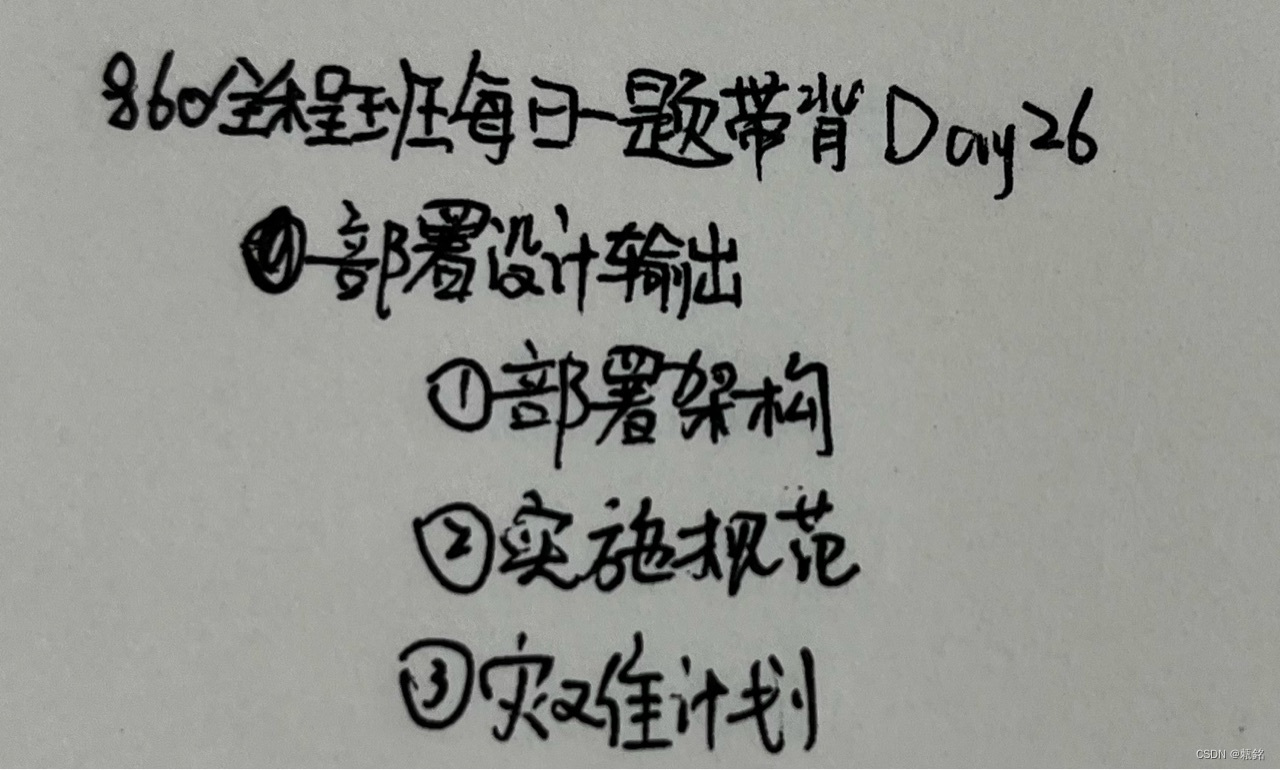 860全程班每日一题带背Day26
部署设计输出
①部署架构
②实施规范
③灾难计划
CSDN @甄铭